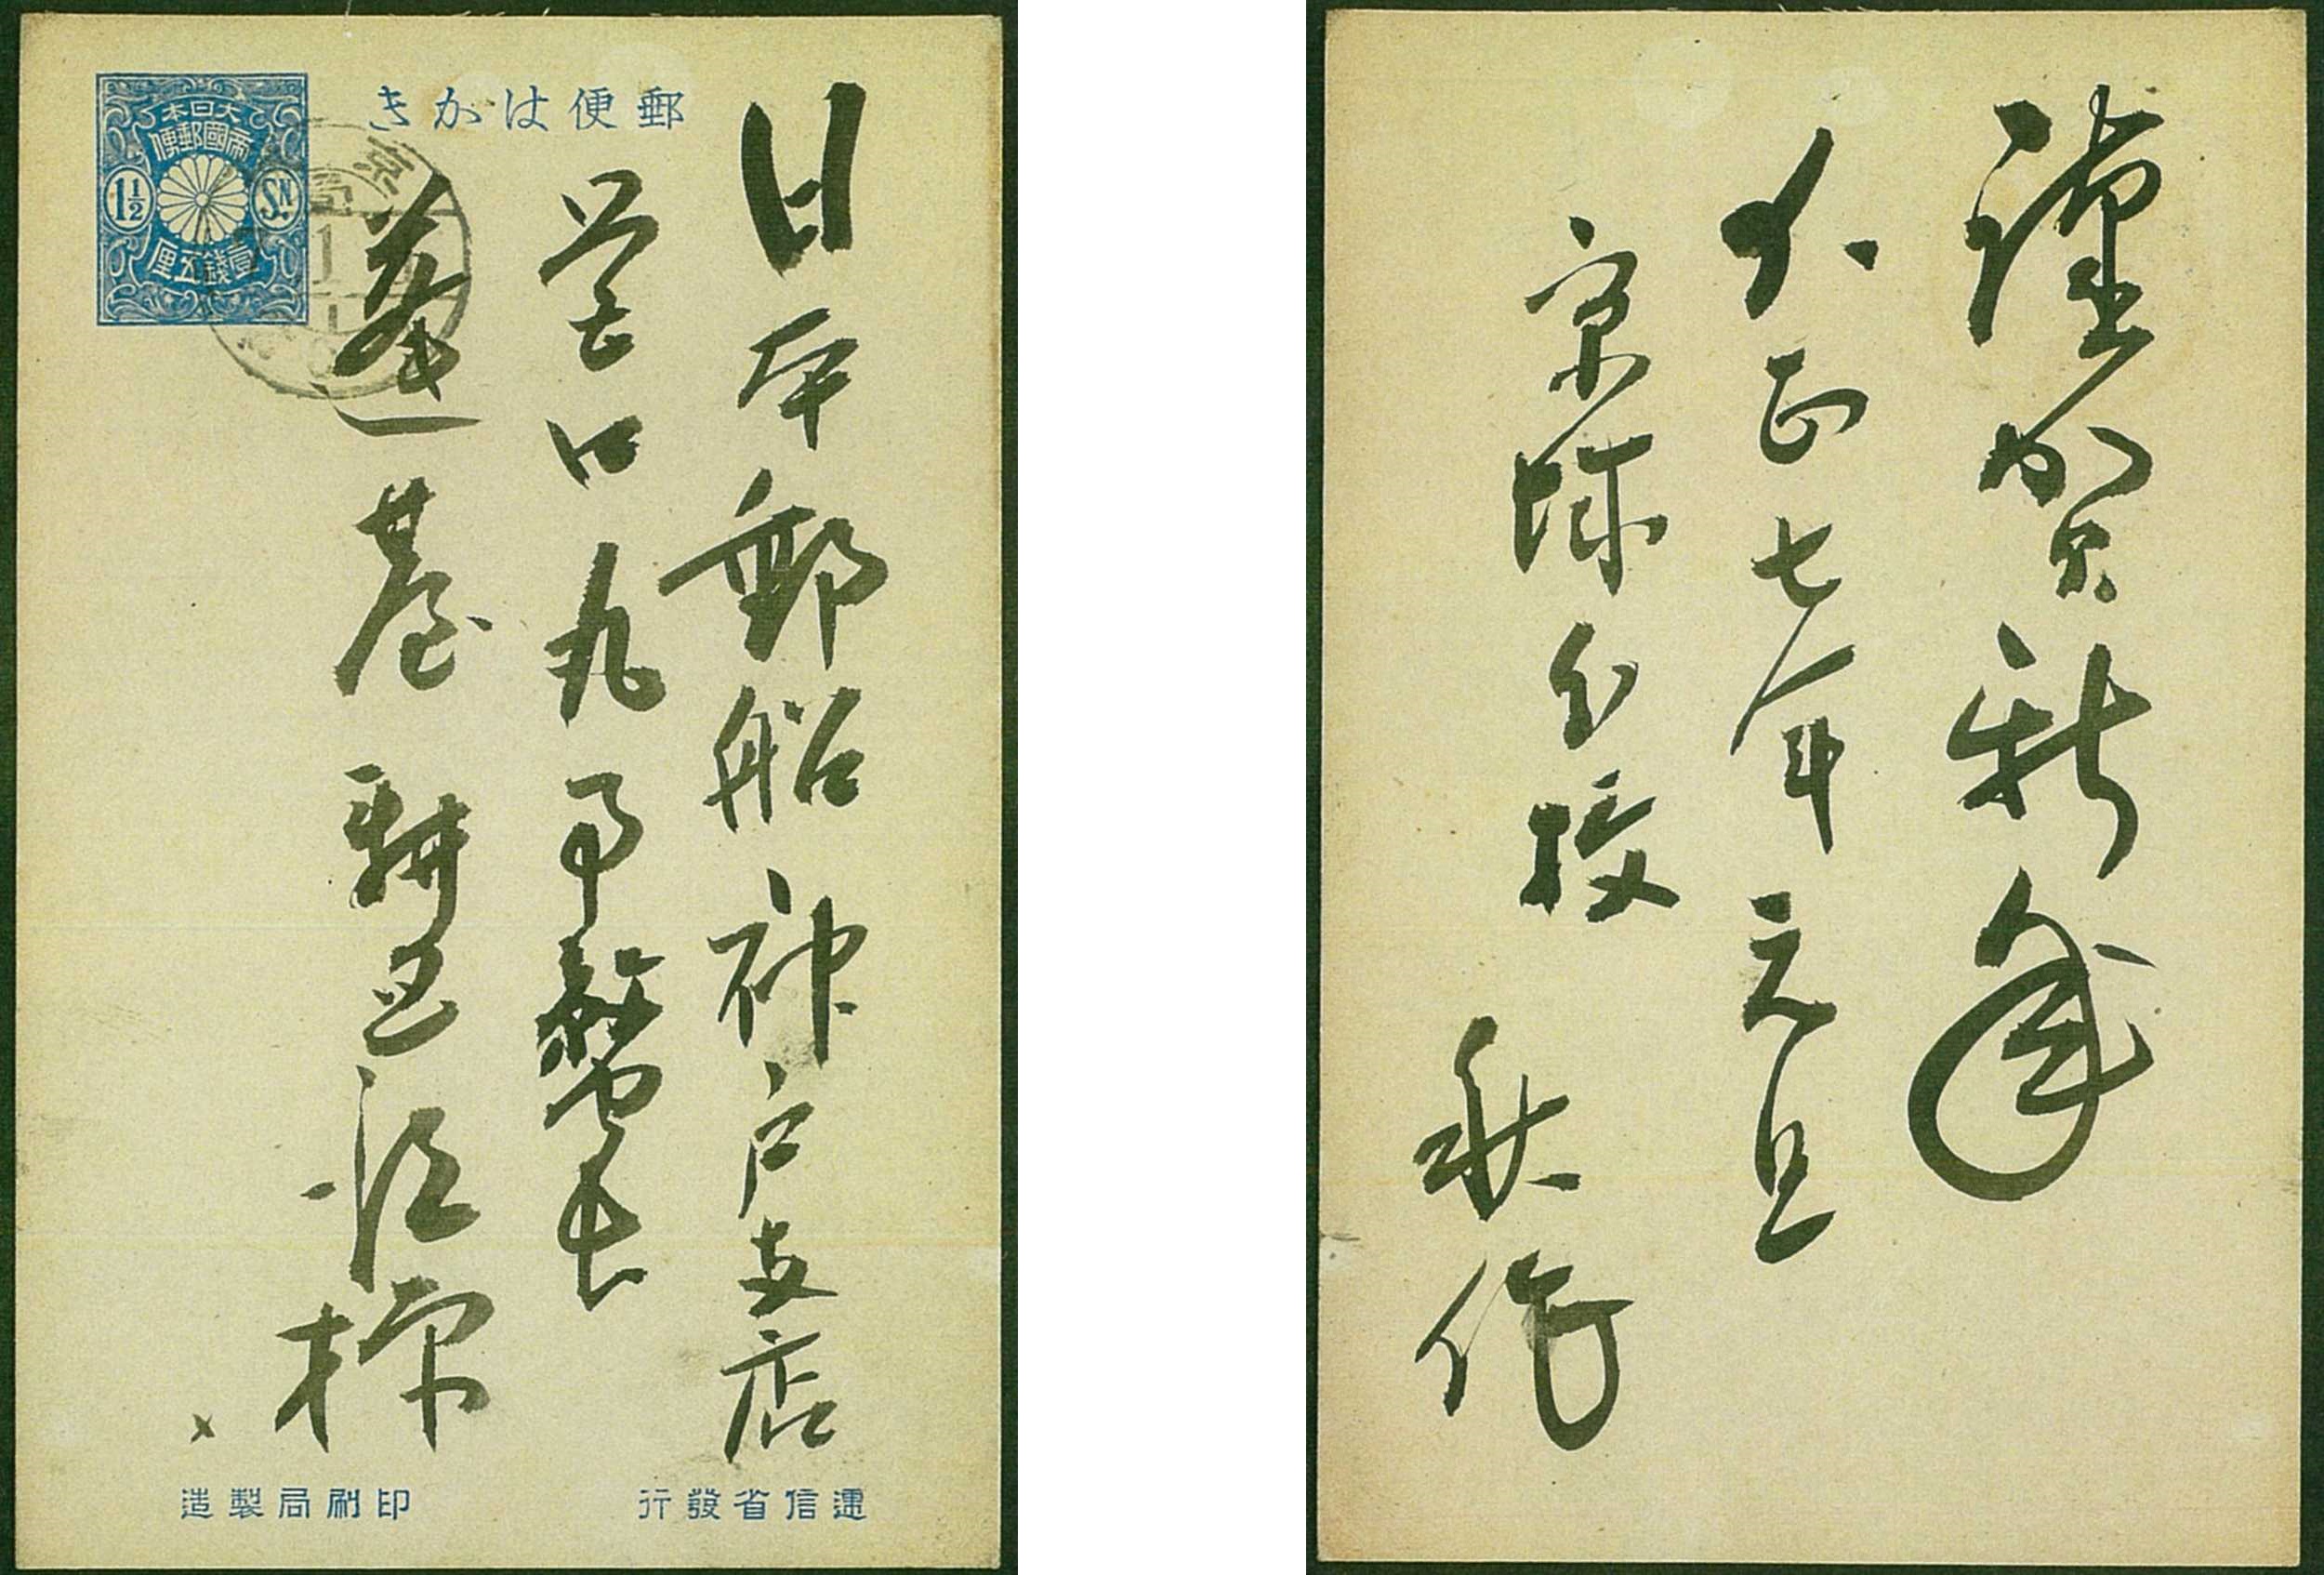 郵便はがき
大日本
帝國郵便
1½ SN
壹錢五厘
京
日本郵船神戸支店
営口丸事務長
様
遞信省發行
印刷局製造
謹賀新年
大正七年元旦
京城
秋作